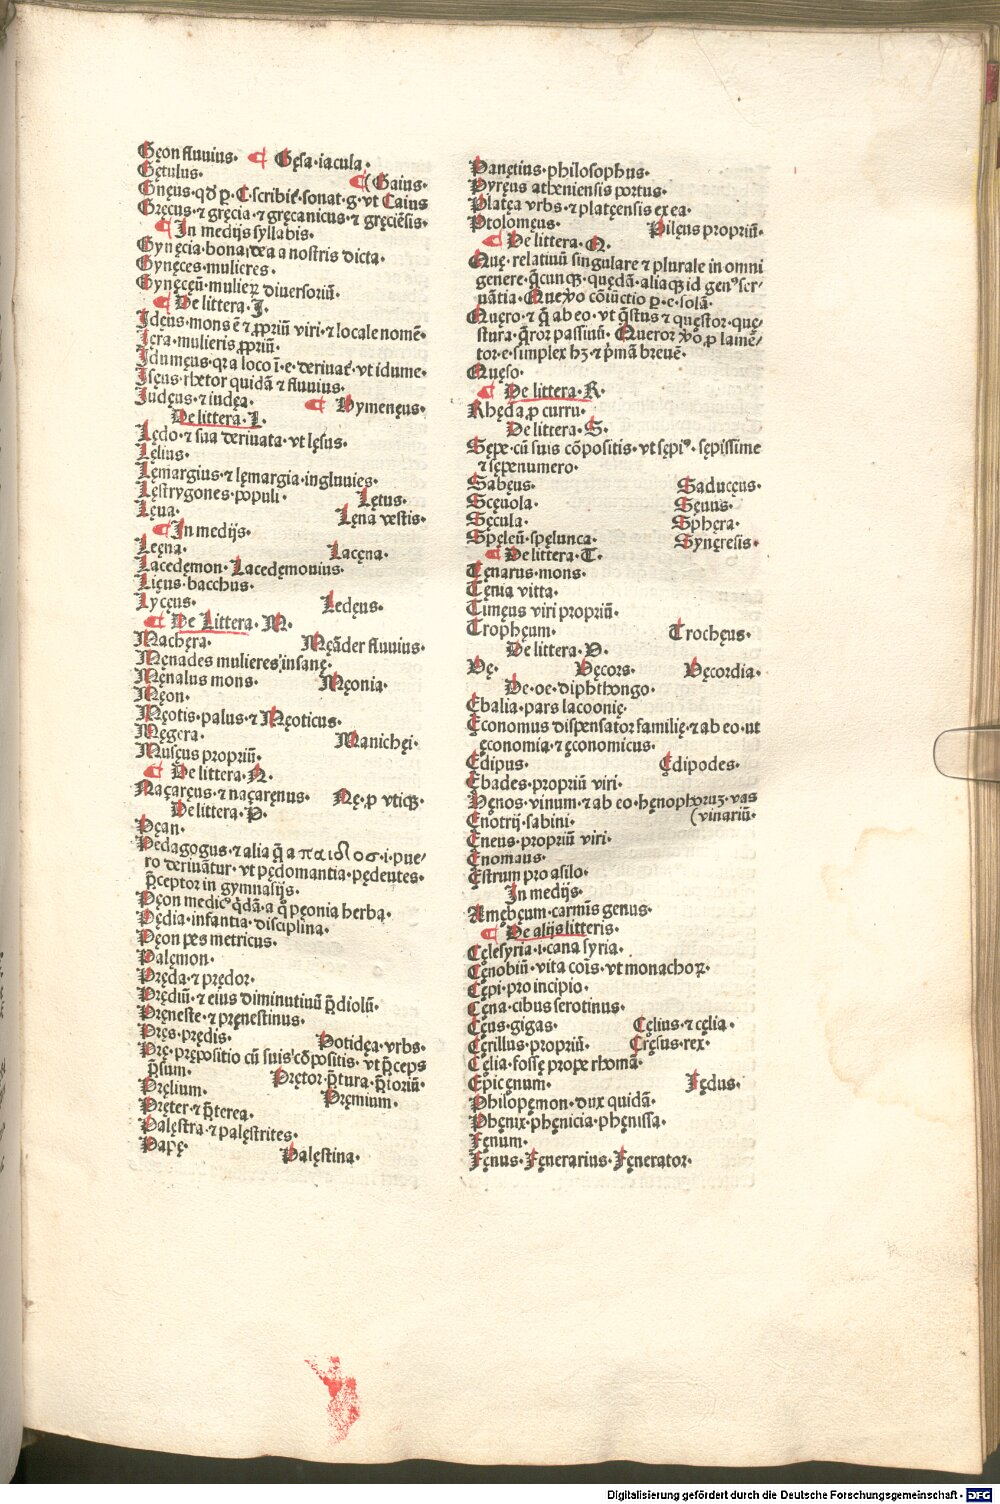 Gęon fluuius· ¶ Gęsa·iacula·
Gętulus·
(Gaius·
Gnęus·qđ ꝑ·C·scribit̄·sonat·g·vt Caius
Gręcus·⁊ gręcia·⁊ gręcanicus·⁊ gręciēsis·
¶ In medijs syllabis·
Gynęcia·bona dea a nostris dicta·
Gynęces·mulieres·
Gynęcęū·mulieꝝ diuersoriū·
¶ De littera·I·
Idęus·mons ē ⁊ ꝓpriū viri·⁊ locale nomē·
Ięra·mulieris ꝓpriū·
Idumęus·qr a loco ī·e·deriuat̄·vt idume·
Isęus·rhetor quidā ⁊ fluuius·
Iudęus·⁊ iudęa· ¶ Hymenęus·
De littera·L·
Lędo·⁊ sua deriuata·vt lęsus·
Lęlius·
Lemargius·⁊ lęmargia·ingluuies·
Lęstrygones·populi· Lętus·
Lęua· Lęna vestis·
¶ In medijs·
Leęna· Lacęna·
Lacedęmon·Lacedęmonius·
Lięus·bacchus·
Lycęus· Ledęus·
¶ De Littera·M·
Machęra· Męāder fluuius·
Męnades mulieres insanę·
Męnalus mons· Męonia·
Męon·
Męotis·palus·⁊ Męoticus·
Męgera· Manichęi·
Musęus propriū·
¶ De littera·N·
Naçaręus·⁊ naçarenus· Nę·ꝓ vtiqꝫ·
De littera·P·
Pęan·
Pedagogus·⁊ alia q̄ a παιδος·i·pue/
ro deriuātur·vt pędomantia·pędeutes·
p̄ceptor in gymnasijs·
Pęon medicꝰ q̇dā·a q̊ pęonia herba·
Pędia·infantia·disciplina·
Pęon pes metricus·
Palęmon·
Pręda·⁊ prędor·
Prędiū·⁊ eius diminutiuū p̄diolū·
Pręneste·⁊ pręnestinus·
Pręs·prędis· Potidęa·vrbs·
Prę·prępositio cū suis cōpositis·vt p̄ceps
p̄sum· Prętor·p̄tura·p̄toriū·
Pręlium· Pręmium·
Pręter·⁊ p̄terea·
Palęstra·⁊ palęstrites·
Papę· Palęstina·
Panętius·philosophus·
Pyręus atheniensis portus·
Platęa vrbs·⁊ platęensis ex ea·
Ptolomęus· Pilęus propriū·
¶ De littera·Q·
Quę·relatiuū singulare ⁊ plurale in omni
genere·q̄cunqꝫ·quędā·aliaqꝫ id genꝰ ser-
uātia·Que v̊o cōiūctio ꝑ·e·solā·
Quęro·⁊ q̄ ab eo·vt q̄stus ⁊ quęstor·quę/
stura·q̄ror passiuū·Queror v̊o ꝓ lamē/
tor·e·simplex hꝫ·⁊ p̄mā breuē·
Quęso·
¶ De littera·R·
Rhęda ꝓ curru·
De littera·S·
Sępe·cū suis cōpositis·vt sępiꝰ·sępissime
⁊ sępenumero·
Sabęus· Saducęus·
Scęuola· Sęuus·
Sęcula· Sphęra·
Spęleū·spęlunca· Synęresis·
¶ De littera·T·
Tęnarus·mons·
Tęnia vitta·
Timęus viri propriū·
Trophęum· Trochęus·
De littera·V·
Vę· Vęcors· Vęcordia·
De·oe·diphthongo·
Ębalia·pars lacoonię·
Ęconomus dispensator familię·⁊ ab eo·ut
ęconomia·⁊ ęconomicus·
Ędipus· Ędipodes·
Ębades·propriū viri·
Hęnos·vinum·⁊ ab eo·hęnophoruꝫ·vas
Ęnotrij·sabini· (vinariū·
Ęneus·propriū viri·
Ęnomaus·
Ęstrum pro asilo·
In medijs·
Amębęum·carmīs genus·
¶ De alijs litteris·
Cęlesyria·i·caua syria·
Cęnobiū·vita cōis·vt monachoꝝ·
Cępi·pro incipio·
Cęna·cibus serotinus·
Cęus·gigas· Cęlius·⁊ cęlia·
Cęrillus·propriū· Cręsus·rex·
Cęlia·fossę prope rhomā·
Epicęnum· Fędus·
Philopęmon·dux quidā·
Phęnix·phęnicia·phęnissa·
Fęnum·
Fęnus·Fęnerarius·Fęnerator·
Digitalisierung gefördert durch die Deutsche Forschungsgemeinschaft - DFG